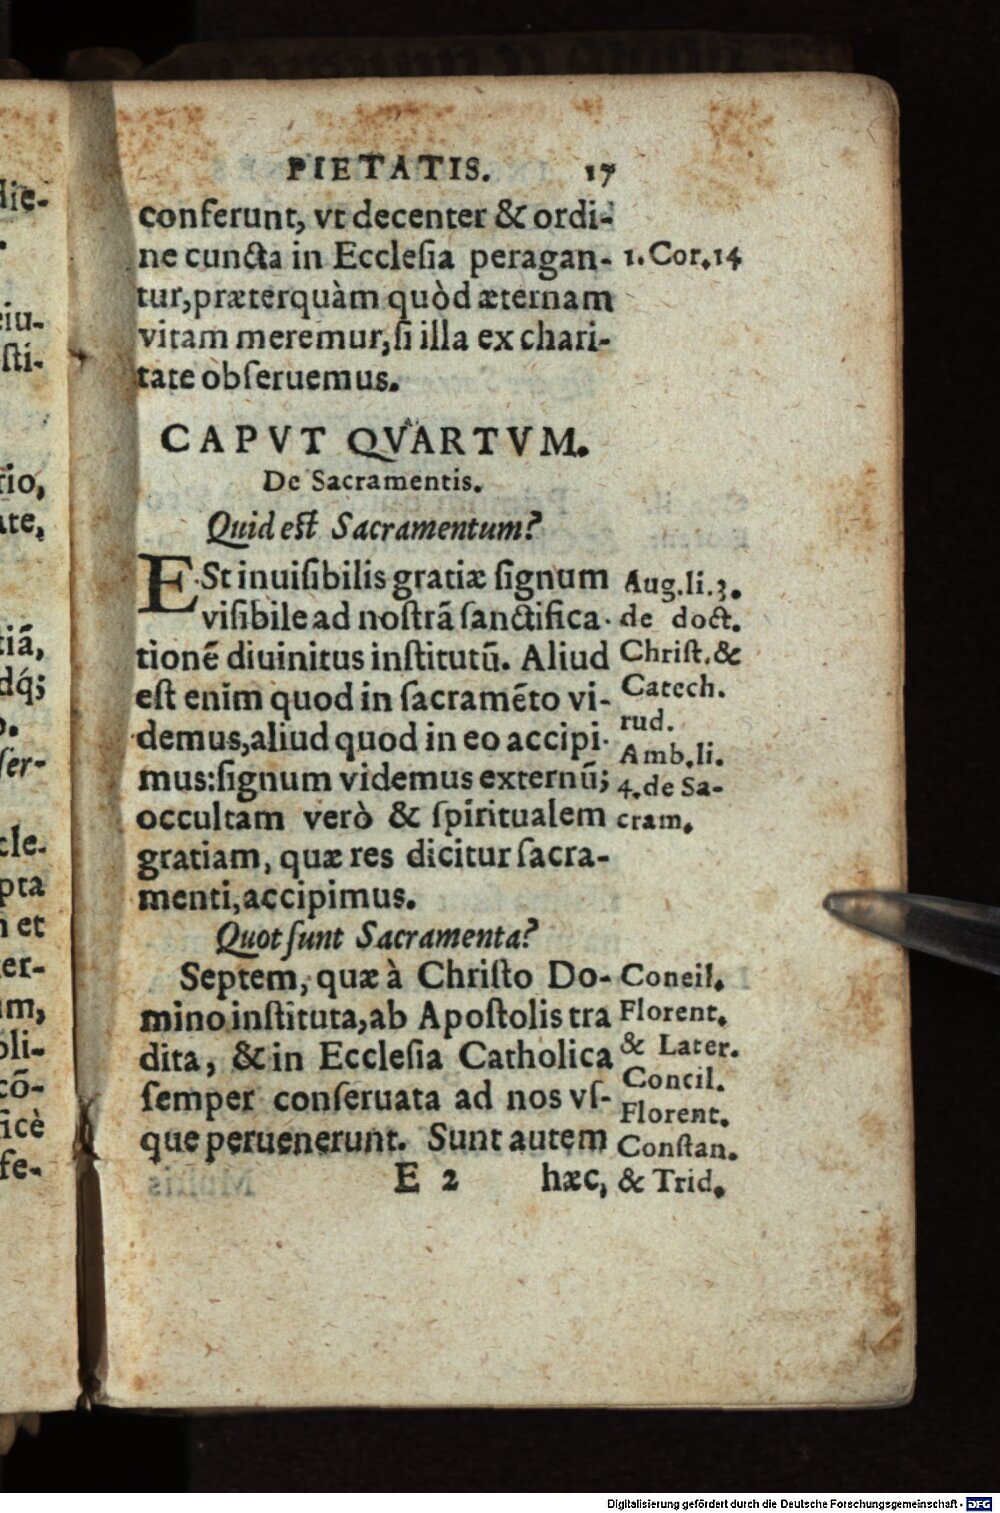 PIETATIS. 17
conferunt, vt decenter & ordi-
ne cuncta in Ecclesia peragan-
tur, præterquàm quòd æternam
vitam meremur, si illa ex chari-
tate obseruemus.
1. Cor. 14
CAPVT QVARTVM.
De Sacramentis.
Quid est Sacramentum?
ESt inuisibilis gratiæ signum
visibile ad nostrã sanctifica-
tionẽ diuinitus institutũ. Aliud
est enim quod in sacramẽto vi-
demus, aliud quod in eo accipi-
mus: signum videmus externũ;
occultam verò & spiritualem
gratiam, quæ res dicitur sacra-
menti, accipimus.
Aug. li. 3.
de doct.
Christ. &
Catech.
rud.
Amb. li.
4. de Sa-
cram.
Quot sunt Sacramenta?
Septem, quæ à Christo Do-
mino instituta, ab Apostolis tra
dita, & in Ecclesia Catholica
semper conseruata ad nos vs-
que peruenerunt. Sunt autem
E 2 hæc,
Concil.
Florent.
& Later.
Concil.
Florent.
Constan.
& Trid.
die-
eiu-
sti-
rio,
ate,
tiã,
dq́;
ser-
cle-
pta
et
ter-
um,
oli-
cõ-
ficè
fe-
Digitalisierung gefördert durch die Deutsche Forschungsgemeinschaft - DFG